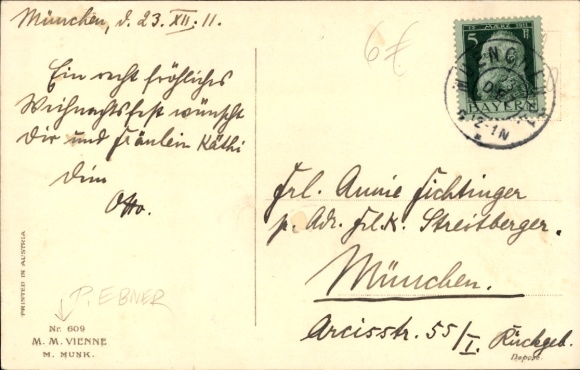 München, d. 23. XII. 11.
Ein recht fröhliches
Weihnachtsfest wünscht
Dir und Fräulein Käthi
Dein
Otto.
PRINTED IN AUSTRIA
P. EBNER
Nr. 609
M. M. VIENNE
M. MUNK.
6€
5
BAYERN
12-1N
Frl. Annie Fichtinger
p. Adr. Frl. K. Streitberger.
München.
Arcisstr. 55/I. Rückgeb.